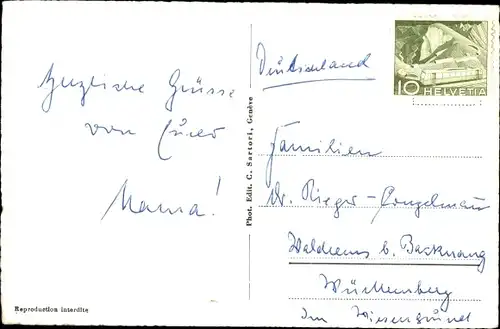 Herzliche Grüsse
von Eurer
Mama!
Reproduction interdite
Phot. Edit. C. Sartori, Genève
Deutschland
10 HELVETIA
Familien
Dr. Rieger-
Waldrems b. Backnang
Württemberg
Im Wiesengrund